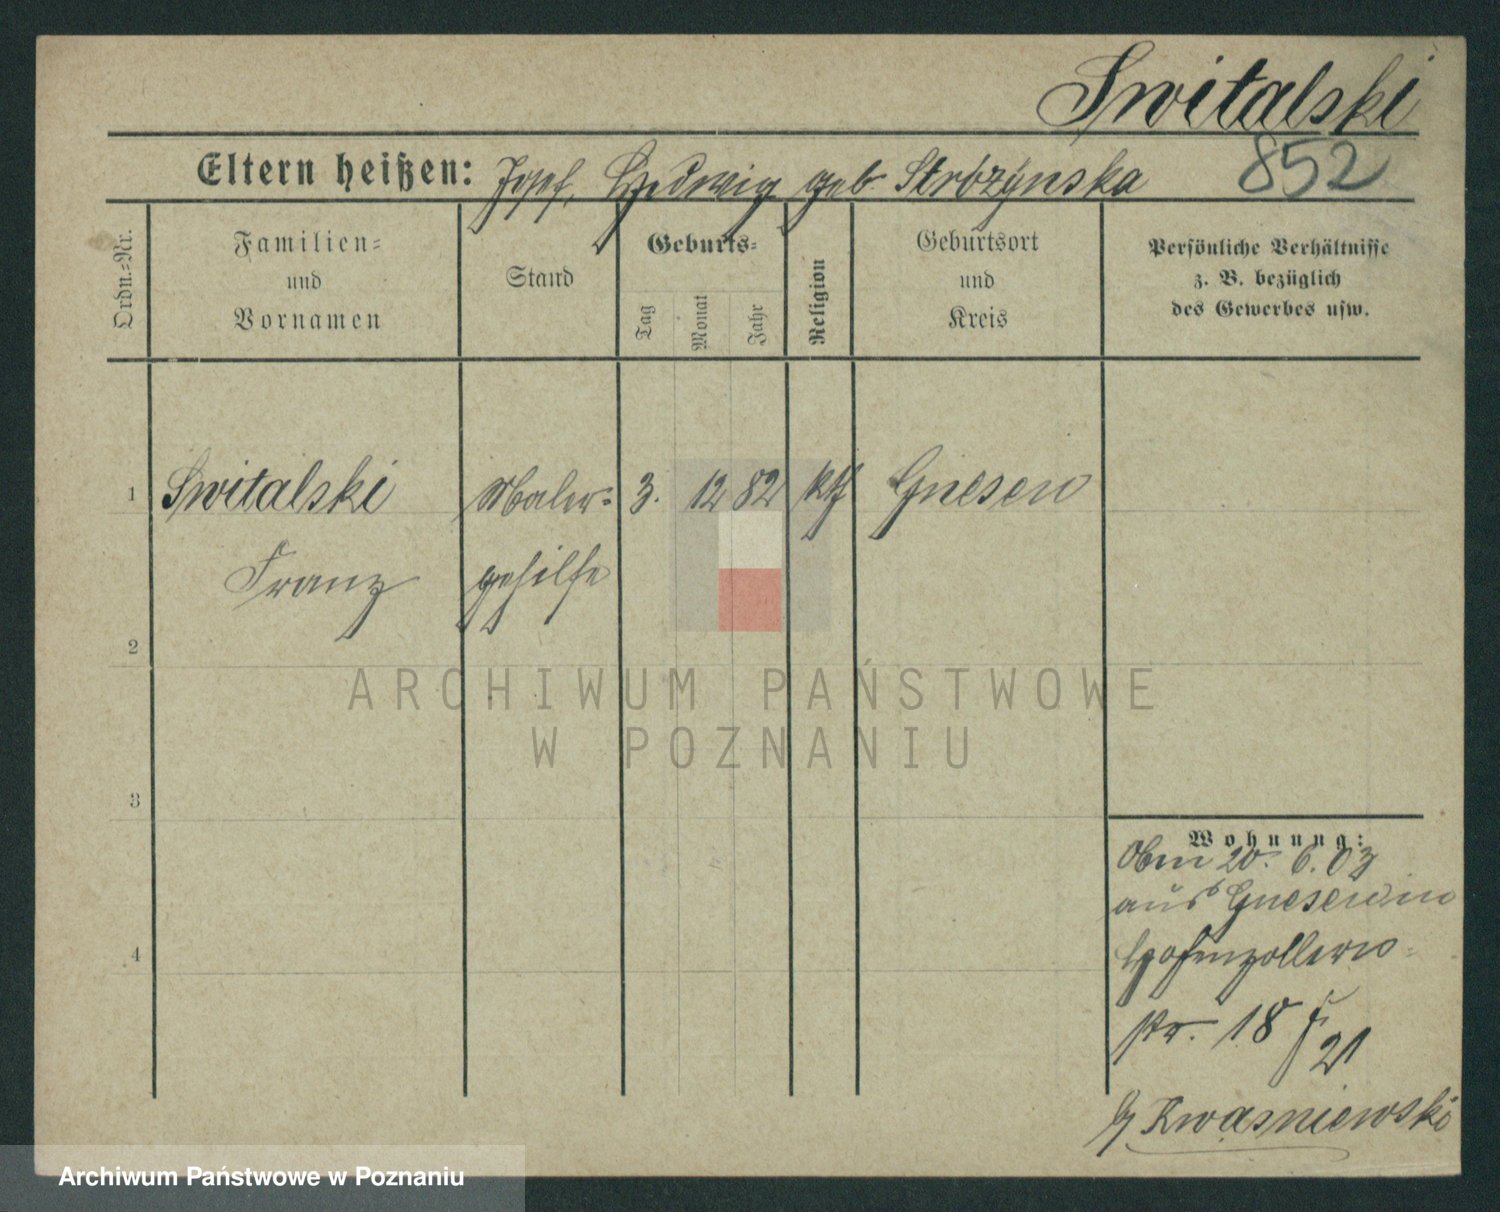 Switalski
852
Eltern heißen: Josef, Hedwig geb Strózynska
Ordn.=Nr.
Familien=
und
Vornamen
Stand
Geburts=
Tag
Monat
Jahr
Religion
Geburtsort
und
Kreis
Persönliche Verhältnisse
z. B. bezüglich
des Gewerbes usw.
1 Switalski Maler= 3. 12 82 kth Gnesen
Franz gehilfe
2
3
4
Wohnung:
20. 6. 03
aus Gnesen in
Hohenzollern=
str. 18
21
Kwasniewski
ARCHIWUM PAŃSTWOWE
W POZNANIU
Archiwum Państwowe w Poznaniu